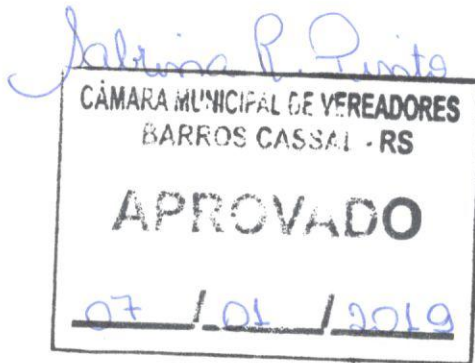 Sabrina R. Pinto
CÂMARA MUNICIPAL DE VEREADORES
BARROS CASSAL - RS
APROVADO
07 / 01 / 2019